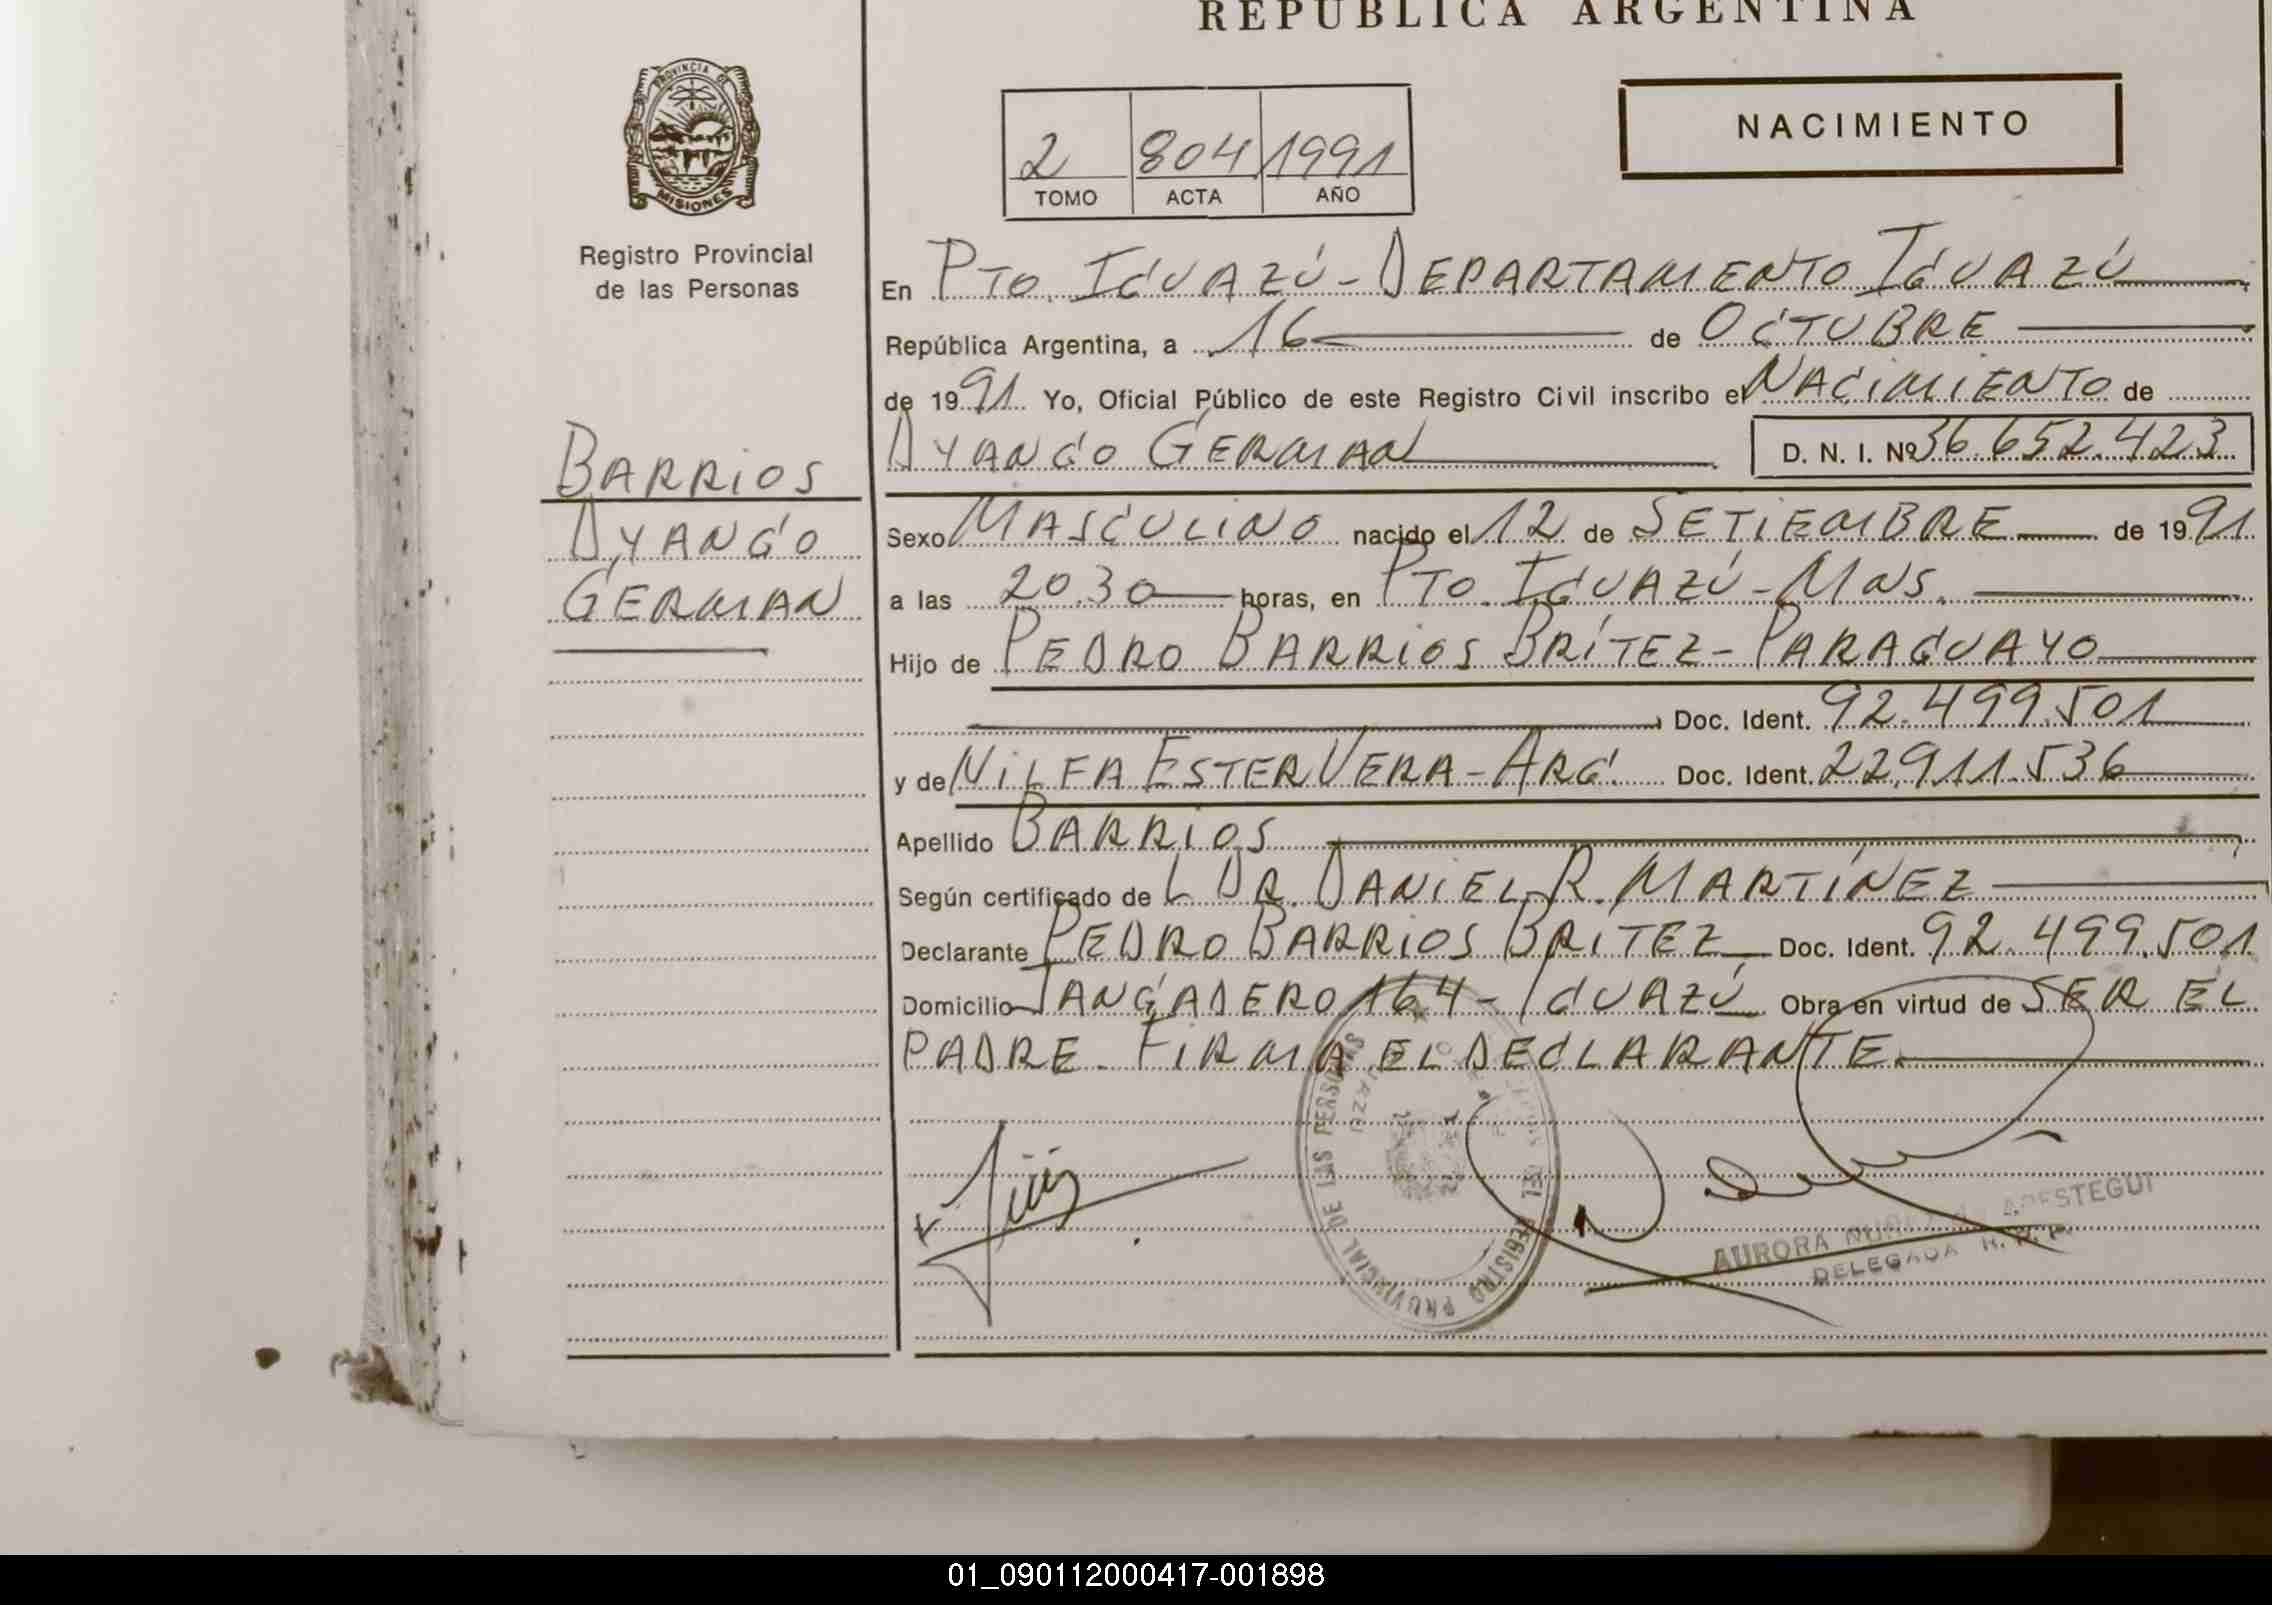 REPUBLICA ARGENTINA
PROVINCIA DE
MISIONES
Registro Provincial
de las Personas
2 804 1991
TOMO ACTA AÑO
NACIMIENTO
En PTO. IGUAZÚ - DEPARTAMENTO IGUAZÚ
República Argentina, a 16 de OCTUBRE
de 1991 Yo, Oficial Público de este Registro Civil inscribo el NACIMIENTO de
DYANGO GERMAN D. N. I. Nº 36.652.423
BARRIOS
DYANGO
GERMAN
Sexo MASCULINO nacido el 12 de SETIEMBRE de 1991
a las 20.30 horas, en PTO. IGUAZÚ - MNS.
Hijo de PEDRO BARRIOS BRÍTEZ - PARAGUAYO
Doc. Ident. 92.499.501
y de NILFA ESTER VERA - ARG. Doc. Ident. 22.911.536
Apellido BARRIOS
Según certificado de L DR. DANIEL R. MARTÍNEZ
Declarante PEDRO BARRIOS BRITEZ Doc. Ident. 92.499.501
Domicilio TANGADERO 164 - IGUAZÚ Obra en virtud de SER EL
PADRE - FIRMA EL DECLARANTE.
REGISTRO PROVINCIAL DE LAS PERSONAS
AURORA
DELEGADA R. P. P.
01_090112000417-001898